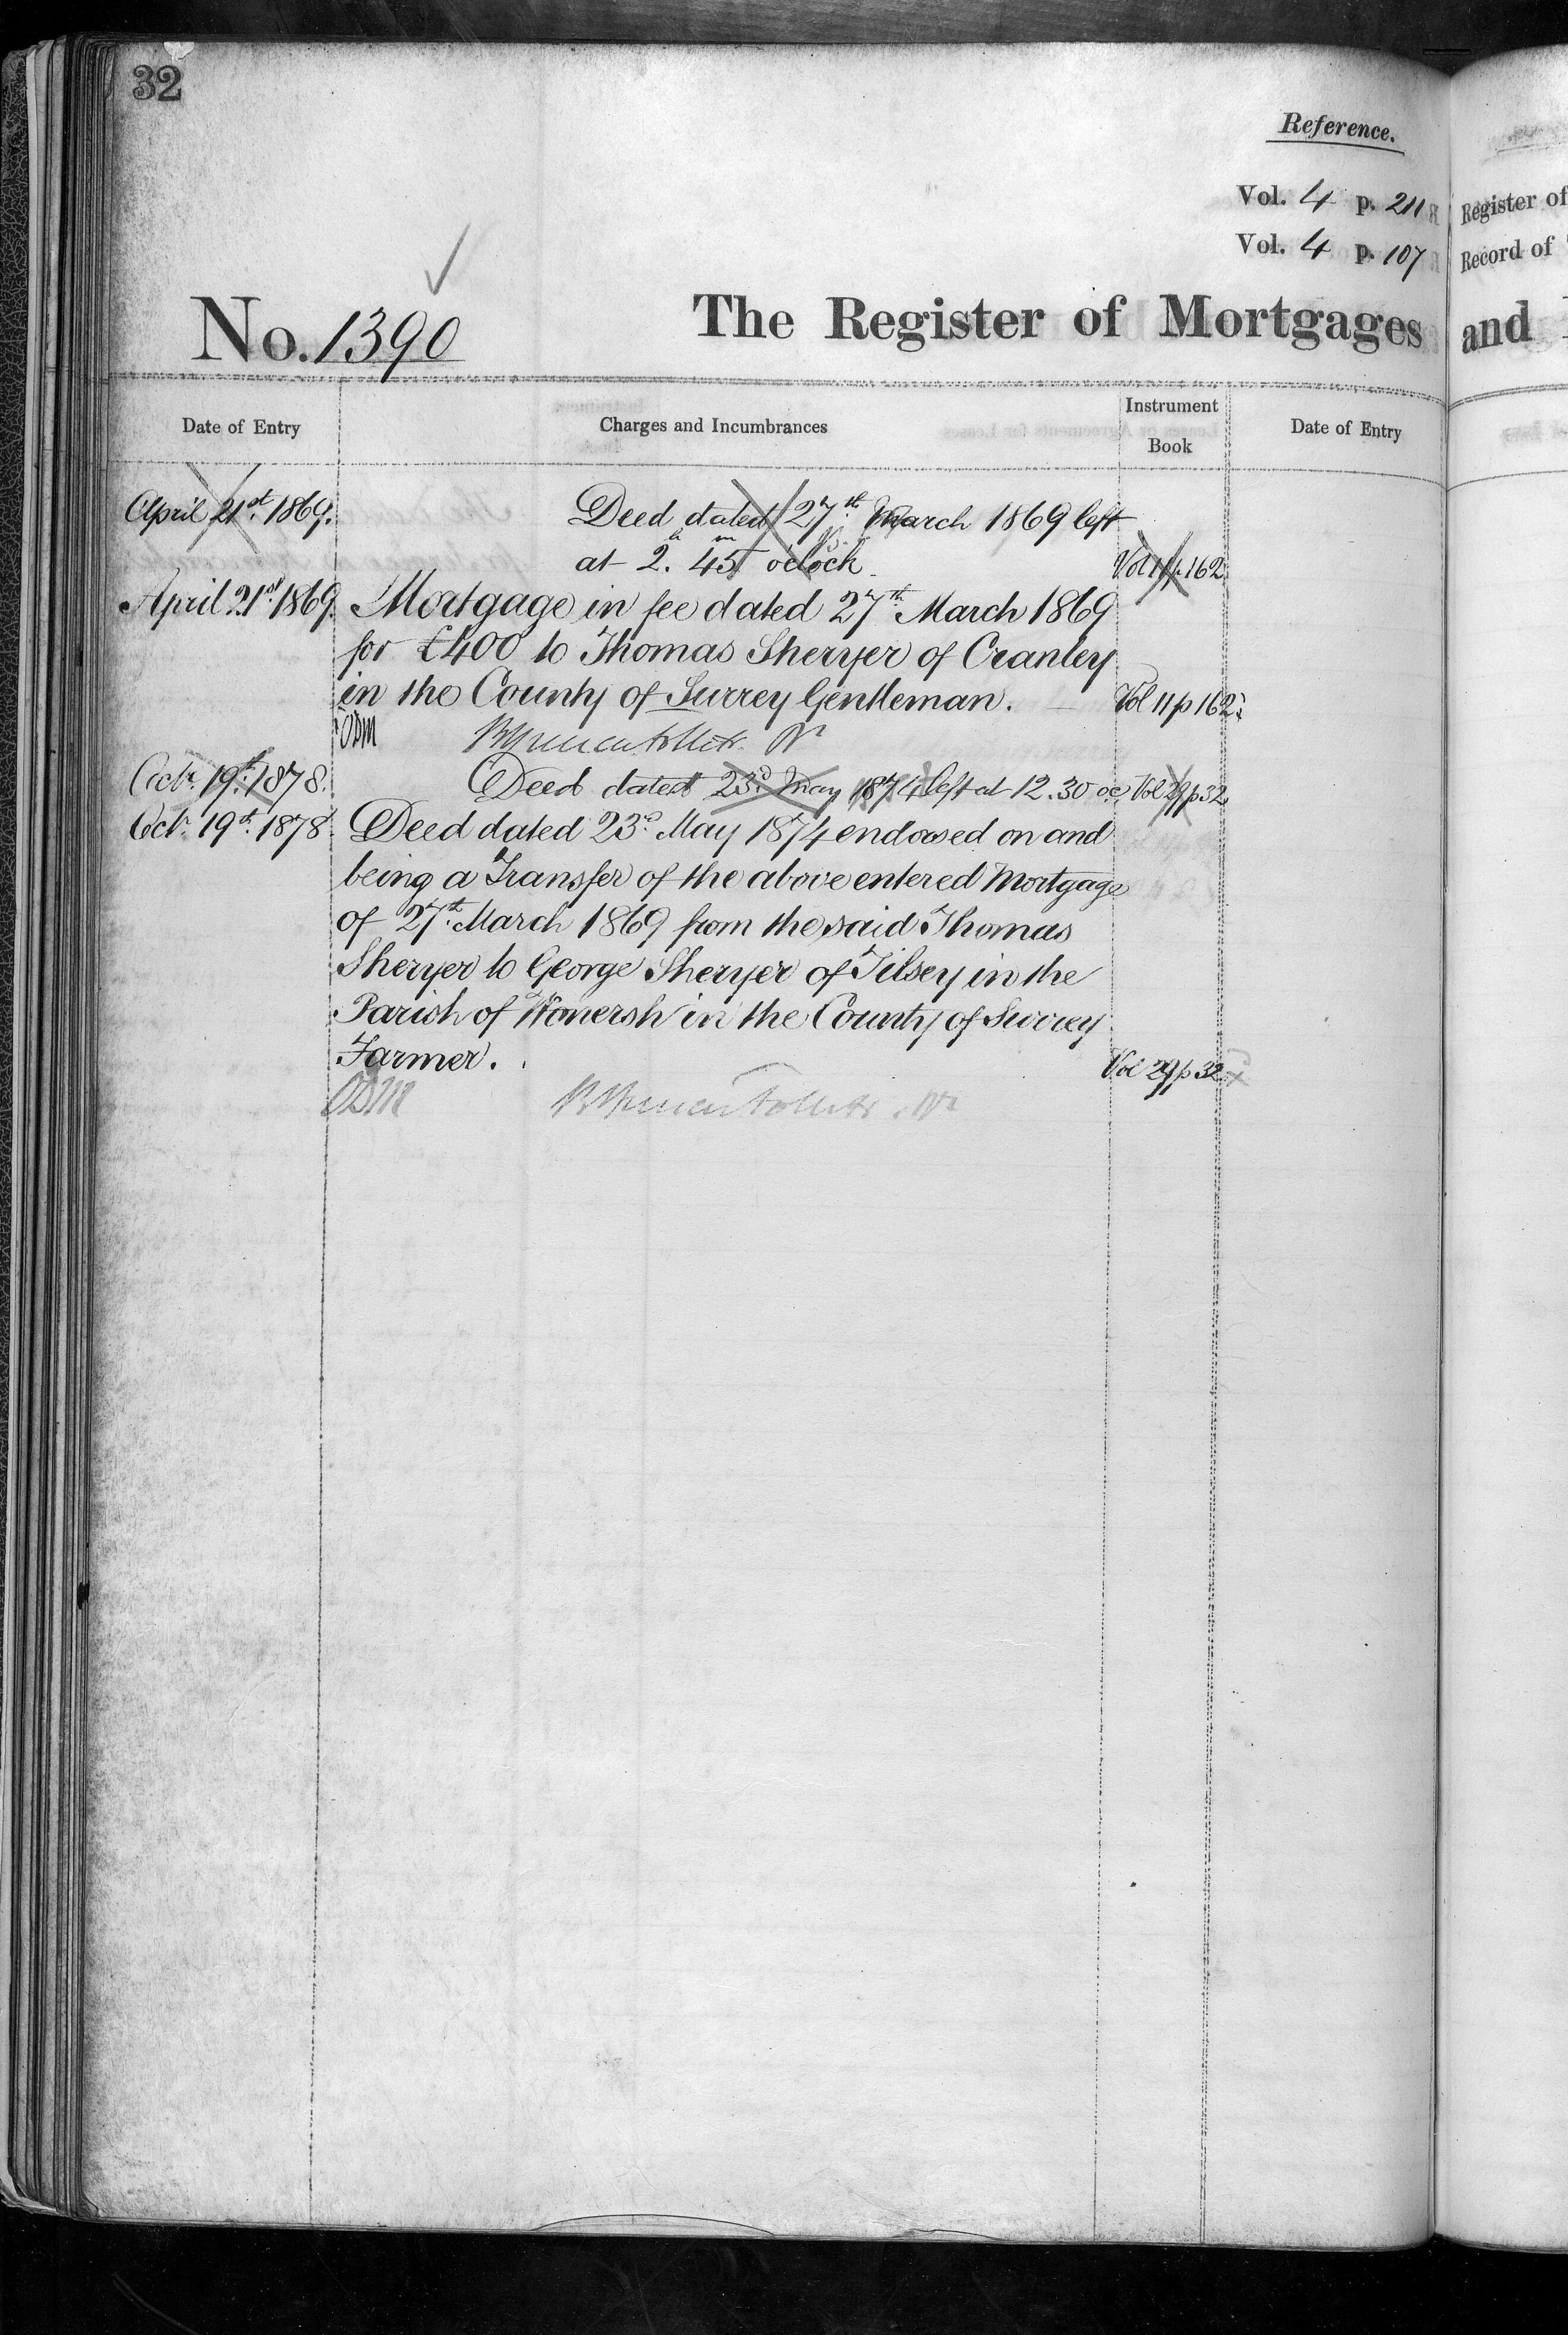 32
Reference.
Vol. 4 p. 211
Vol. 4 p. 107
Register of
Record of
No. 1390
The Register of Mortgages
and
Date of Entry
Charges and Incumbrances
Instrument
Book
Date of Entry
April 21st 1869.
Deed dated 27th March 1869 left
at 2h. 45m o'clock
Vol 11 p 162
April 21st 1869. Mortgage in fee dated 27th March 1869
for £400 to Thomas Sheryer of Cranley
in the County of Surrey Gentleman. Vol 11 p 162
Octr. 19th. 1878. Deed dated 23d. May 1874 left at 12.30 oc Vol 29 p 32
Octr. 19th. 1878. Deed dated 23d. May 1874 endorsed on and
being a Transfer of the above entered Mortgage
of 27th. March 1869 from the said Thomas
Sheryer to George Sheryer of Tilsey in the
Parish of Wonersh in the County of Surrey
Farmer. Vol 29 p 32